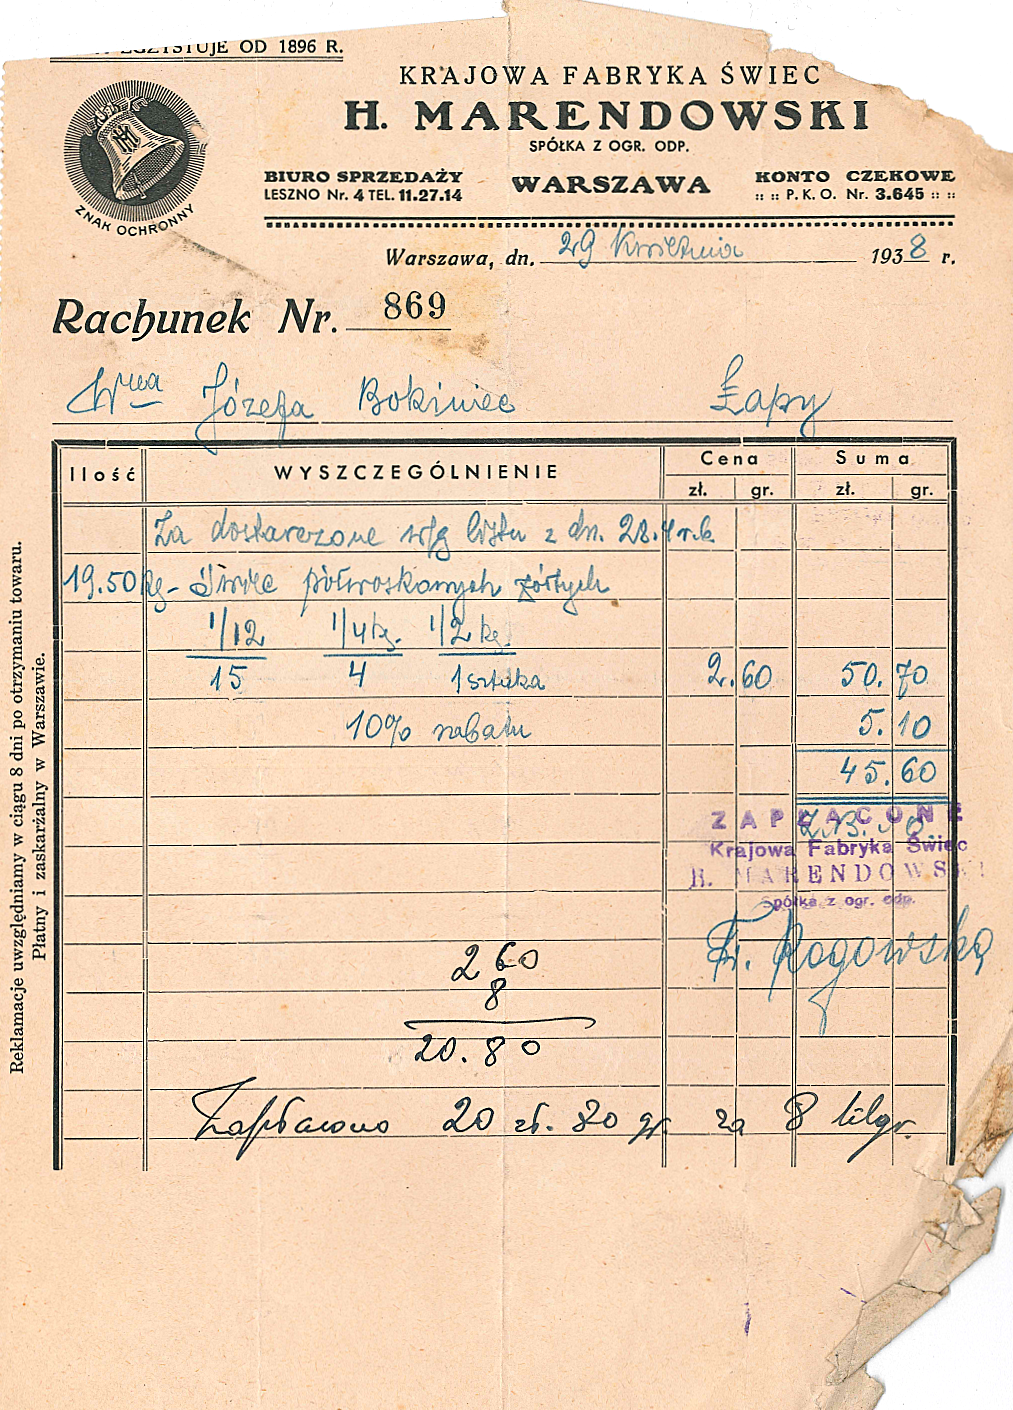 EGZYSTUJE OD 1896 R.
KRAJOWA FABRYKA ŚWIEC
H. MARENDOWSKI
SPÓŁKA Z OGR. ODP.
BIURO SPRZEDAŻY
LESZNO Nr. 4 TEL. 11.27.14
WARSZAWA
KONTO CZEKOWE
:: :: P. K. O. Nr. 3.645 :: ::
ZNAK OCHRONNY
Warszawa, dn. 29 Kwietnia 1938 r.
Rachunek Nr. 869
Wna Józefa Bokiniec Łapy
Ilość WYSZCZEGÓLNIENIE Cena Suma
zł. gr. zł. gr.
Za dostarczone w/g listu z dn. 28.4 r.b.
19.50 kg - Świec półwoskowych żółtych
1/12 1/4 kg. 1/2 kg.
15 4 1 sztuka 2.60 50.70
10% rabatu 5.10
45.60
ZAPŁACONE
Krajowa Fabryka Świec
H. MARENDOWSKI
Spółka z ogr. odp.
Fr. Rogowska
2 60
8
20.80
Zapłacono 20 zł. 80 gr. za 8 kilgr.
Reklamacje uwzględniamy w ciągu 8 dni po otrzymaniu towaru.
Płatny i zaskarżalny w Warszawie.